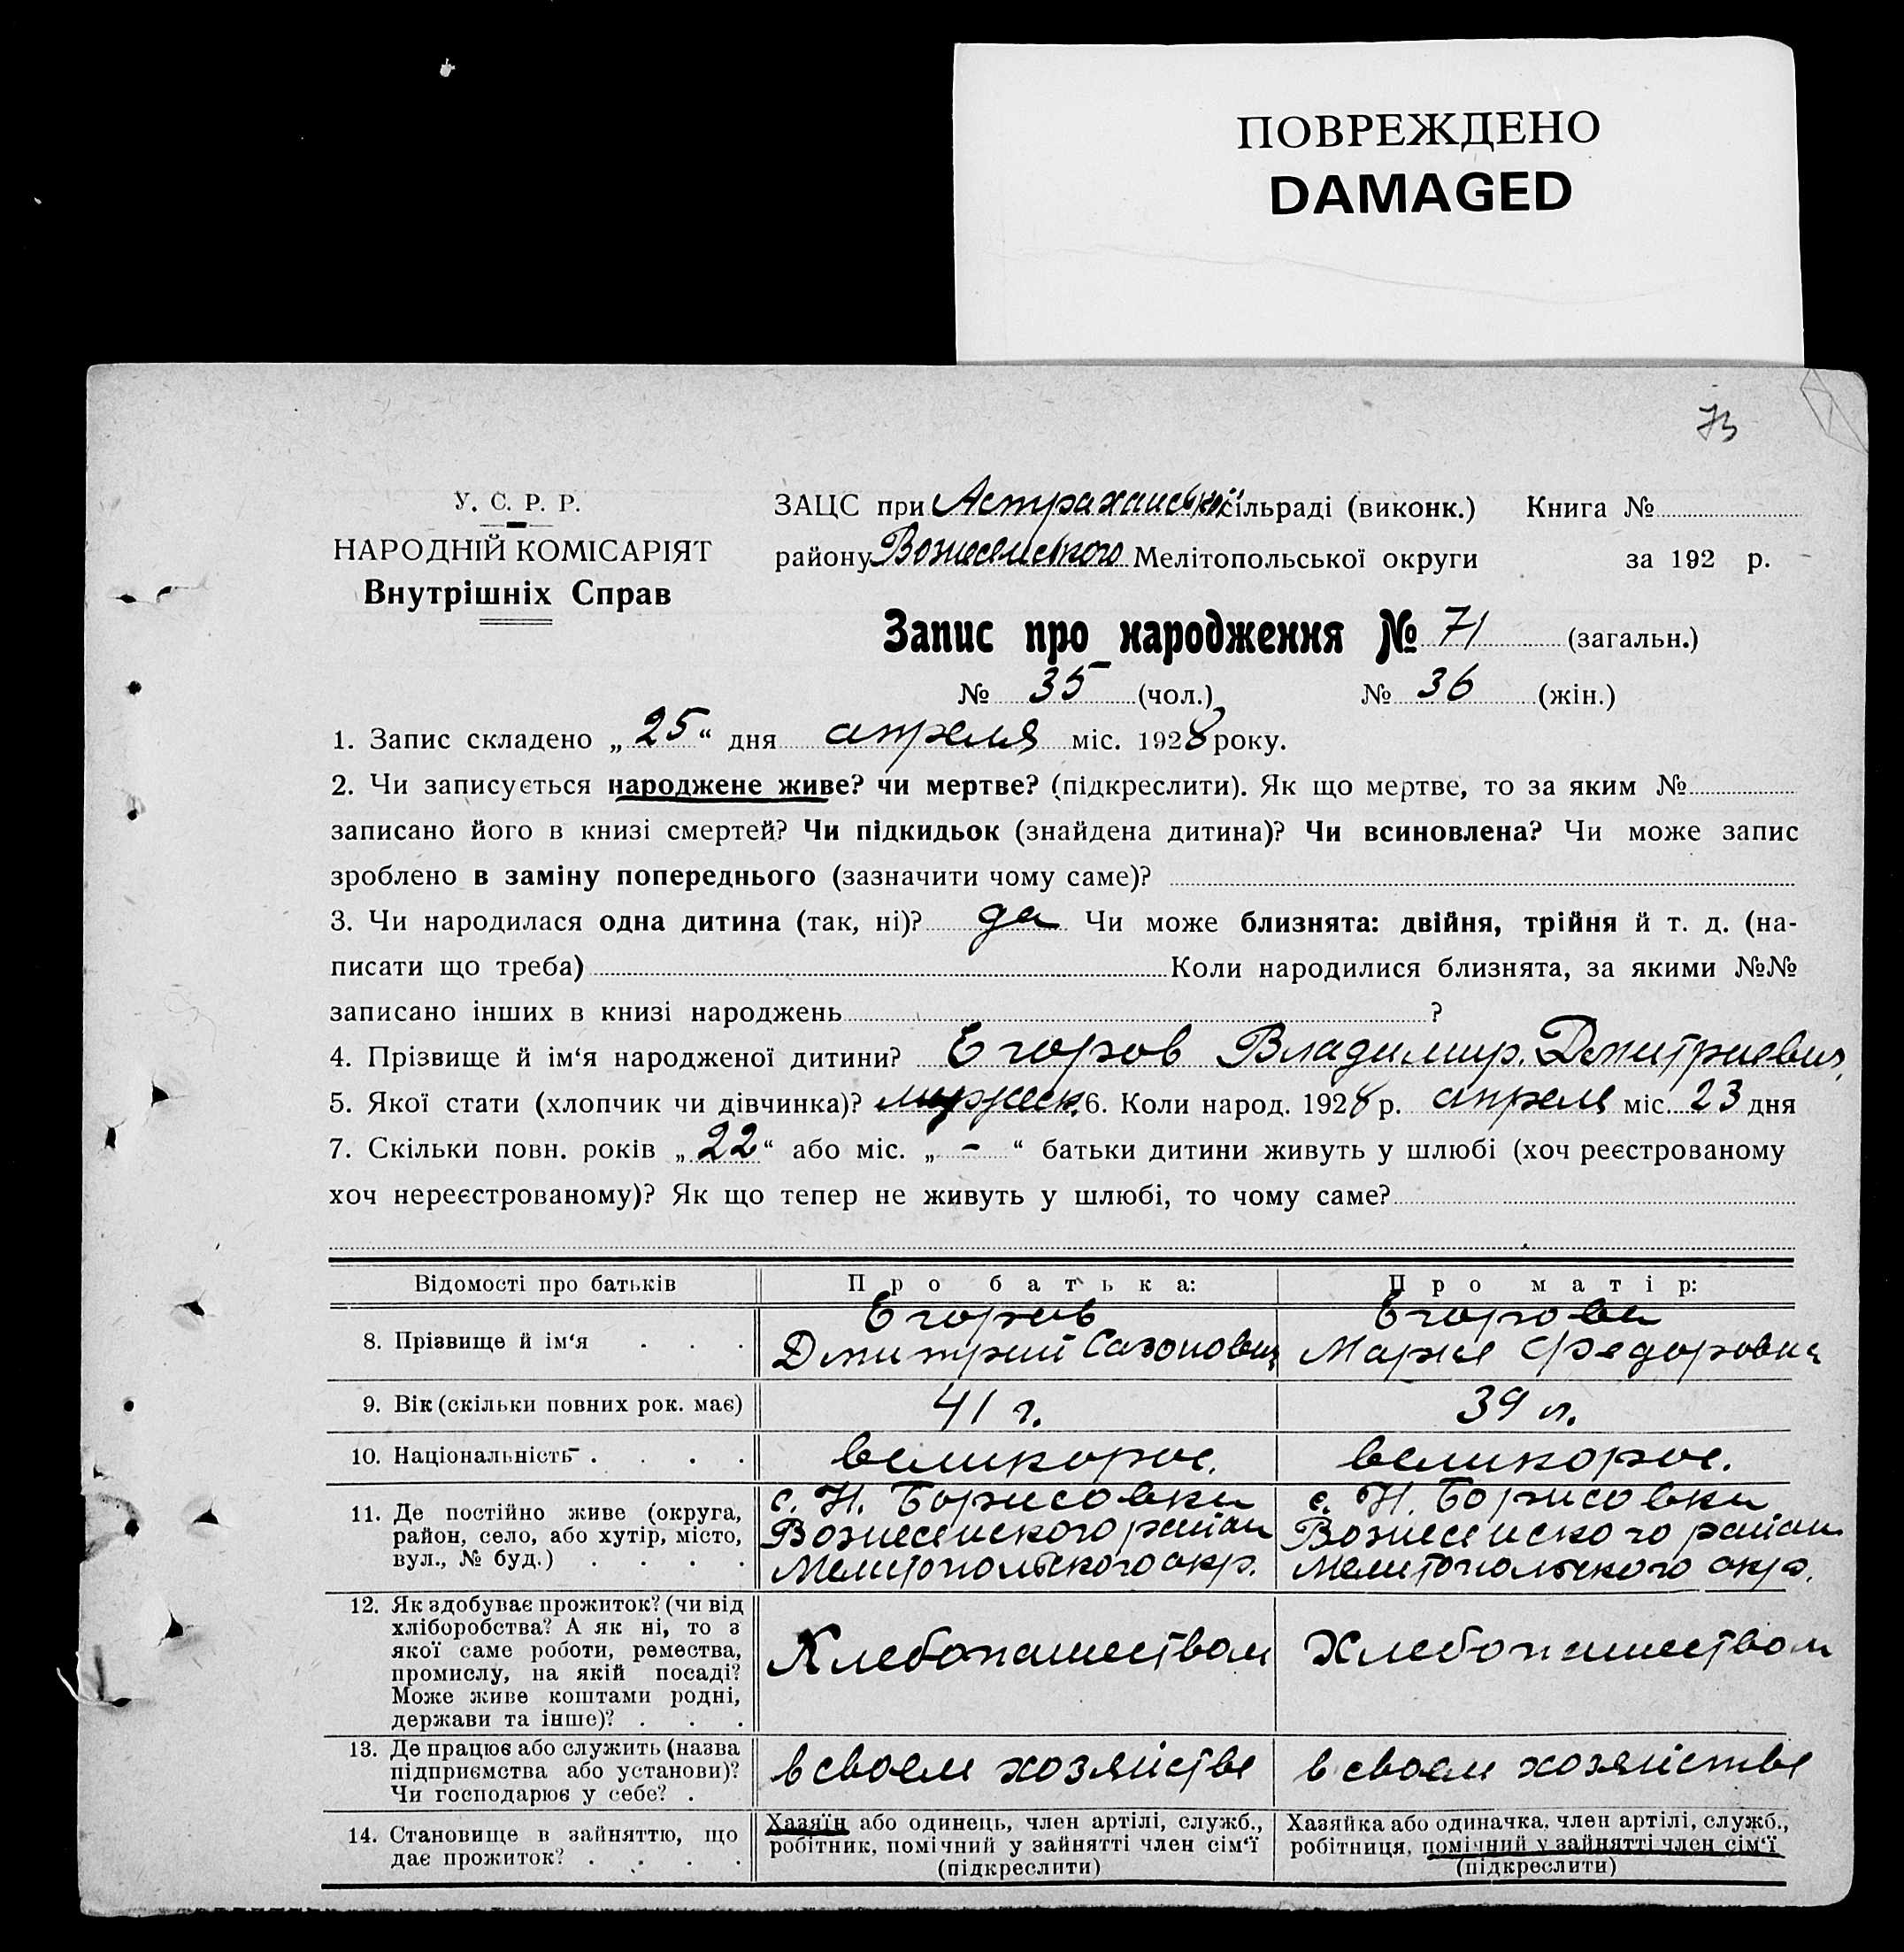 ПОВРЕЖДЕНО
DAMAGED
73
У. С. Р. Р.
НАРОДНІЙ КОМІСАРІЯТ
Внутрішніх Справ
ЗАЦС при Астраханській сільраді (виконк.) Книга №
району Вознесенського Мелітопольської округи за 192 р.
Запис про народження № 71 (загальн.)
№ 35 (чол.) № 36 (жін.)
1. Запис складено „25“ дня апреля міс. 1928 року.
2. Чи записується народжене живе? чи мертве? (підкреслити). Як що мертве, то за яким №
записано його в книзі смертей? Чи підкидьок (знайдена дитина)? Чи всиновлена? Чи може запис
зроблено в заміну попереднього (зазначити чому саме)?
3. Чи народилася одна дитина (так, ні)? да Чи може близнята: двійня, трійня й т. д. (на-
писати що треба) Коли народилися близнята, за якими №№
записано інших в книзі народжень ?
4. Прізвище й ім‘я народженої дитини? Егоров Владимир. Дмитриевич
5. Якої стати (хлопчик чи дівчинка)? мужеск. 6. Коли народ. 1928 р. апреля міс. 23 дня
7. Скільки повн. років „22“ або міс. „-“ батьки дитини живуть у шлюбі (хоч реєстрованому
хоч нереєстрованому)? Як що тепер не живуть у шлюбі, то чому саме?
Відомості про батьків Про батька: Про матір:
8. Прізвище й ім‘я . . .
Егоров
Дмитрий Сазонович
Егорова
Мария Федоровна
9. Вік (скільки повних рок. має) 41 г. 39 л.
10. Національність . . . . великорос. великорос.
11. Де постійно живе (округа,
район, село, або хутір, місто,
вул., № буд.) . . . .
с. Н. Борисовки
Вознесенского района
Мелитопольского окр.
с. Н. Борисовки
Вознесенского района
Мелитопольского окр.
12. Як здобуває прожиток? (чи від
хліборобства? А як ні, то з
якої саме роботи, ремества,
промислу, на якій посаді?
Може живе коштами родні,
держави та інше)? . . .
Хлебопашеством
Хлебопашеством
13. Де працює або служить (назва
підприємства або установи)?
Чи господарює у себе? .
в своем хозяйстве
в своем хозяйстве
14. Становище в зайняттю, що
дає прожиток? . . . .
Хазяїн або одинець, член артілі, служб.,
робітник, помічний у зайнятті член сім‘ї
(підкреслити)
Хазяйка або одиначка, член артілі, служб.,
робітниця, помічний у зайнятті член сім‘ї
(підкреслити)